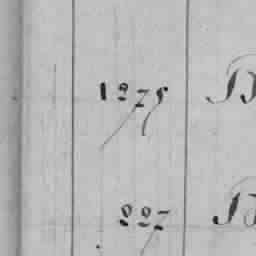 1275
227